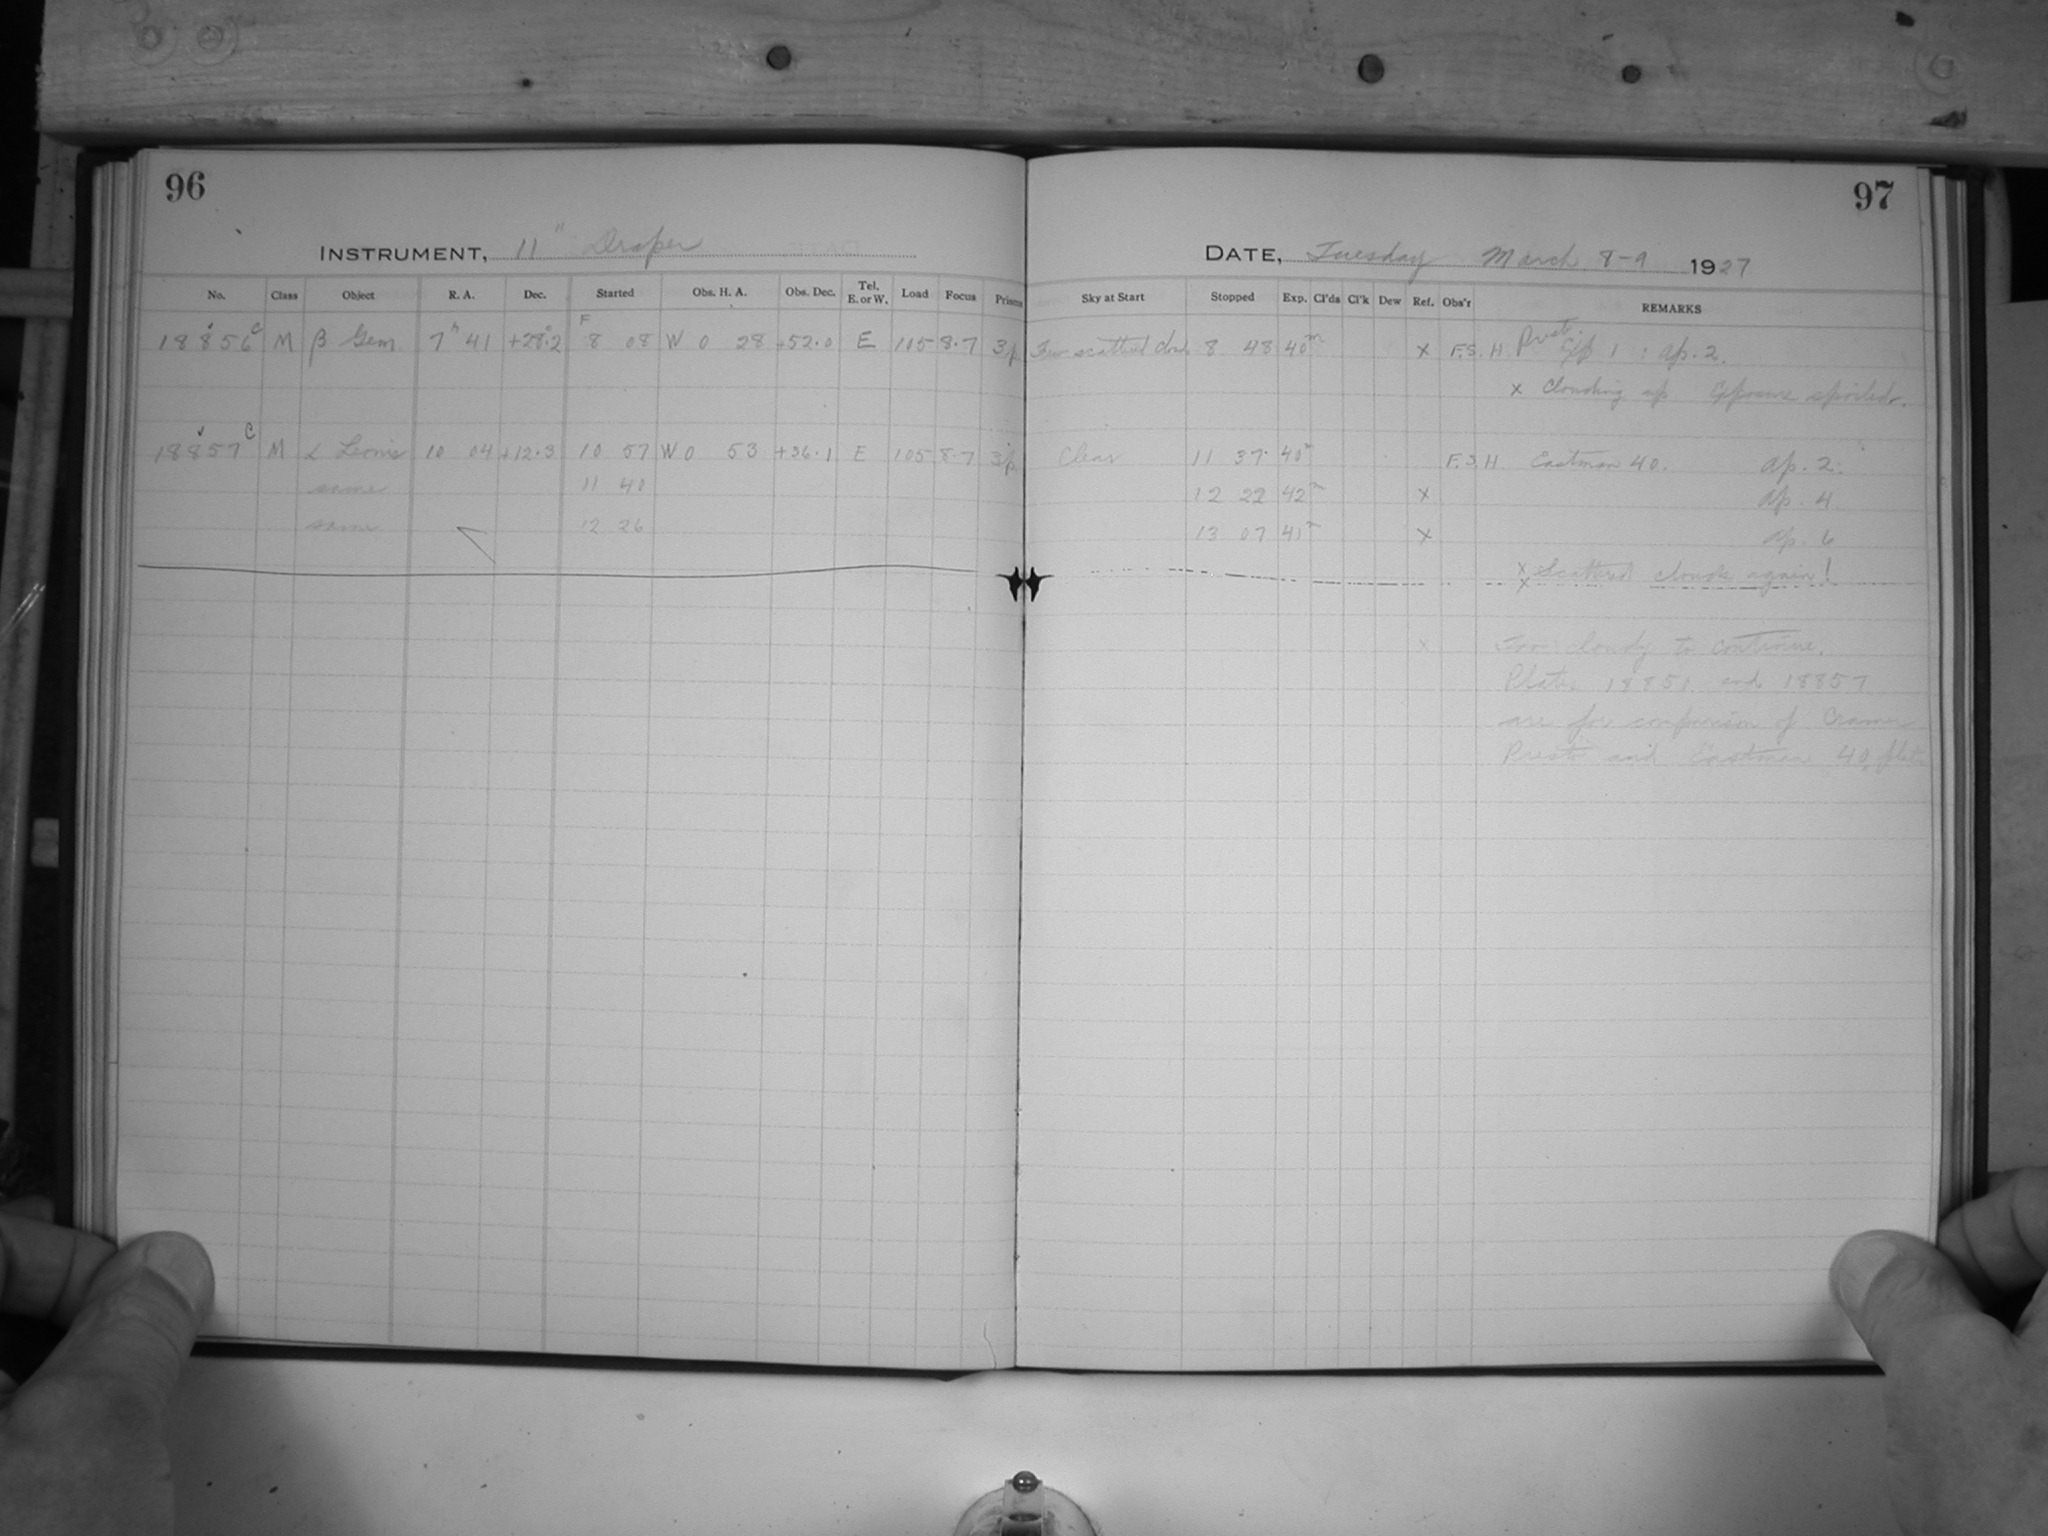 96
INSTRUMENT, 11" Draper
No. Class Object R. A. Dec. Started Obs. H. A. Obs. Dec. Tel. E. or W. Load Focus Prisms
F
18856 C M β Gem. 7h 41 +28°.2 8 08 W 0 28 +52.0 E 105 8.7 3p
18857 C M α Leonis 10 04 +12.3 10 57 W 0 53 +36.1 E 105 8.7 3p
same 11 40
same 12 26
97
DATE, Tuesday March 8-9 1927
Sky at Start Stopped Exp. Cl'ds Cl'k Dew Ref. Obs'r REMARKS
Few scattered clouds 8 48 40m x F.S.H. 1 : ap. 2.
x Clouding up Exposure spoiled.
Clear 11 37 40m F.S.H. Eastman 40. ap. 2.
12 22 42m x ap. 4
13 07 41m x ap. 6
x Scattered clouds again!
x
x Too cloudy to continue.
Plates 18851 and 18857
are for comparison of Cramer
Presto and Eastman 40 plates